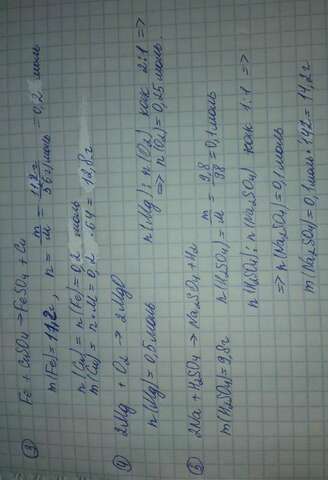 ③ Fe + CuSO₄ → FeSO₄ + Cu
m(Fe) = 11,2 , n = m/M = 11,2г/56г/моль = 0,2 моль
n(Cu) = n(Fe) = 0,2 моль
m(Cu) = n·M = 0,2 · 64 = 12,8г
④ 2Mg + O₂ → 2MgO
n(Mg) = 0,5 моль n(Mg) : n(O₂) как 2:1 =>
=> n(O₂) = 0,25 моль.
⑤ 2Na + H₂SO₄ → Na₂SO₄ + H₂
m(H₂SO₄) = 9,8г n(H₂SO₄) = m/M = 9,8/98 = 0,1 моль
n(H₂SO₄) : n(Na₂SO₄) как 1:1 =>
=> n(Na₂SO₄) = 0,1 моль
m(Na₂SO₄) = 0,1 моль · 142 = 14,2г